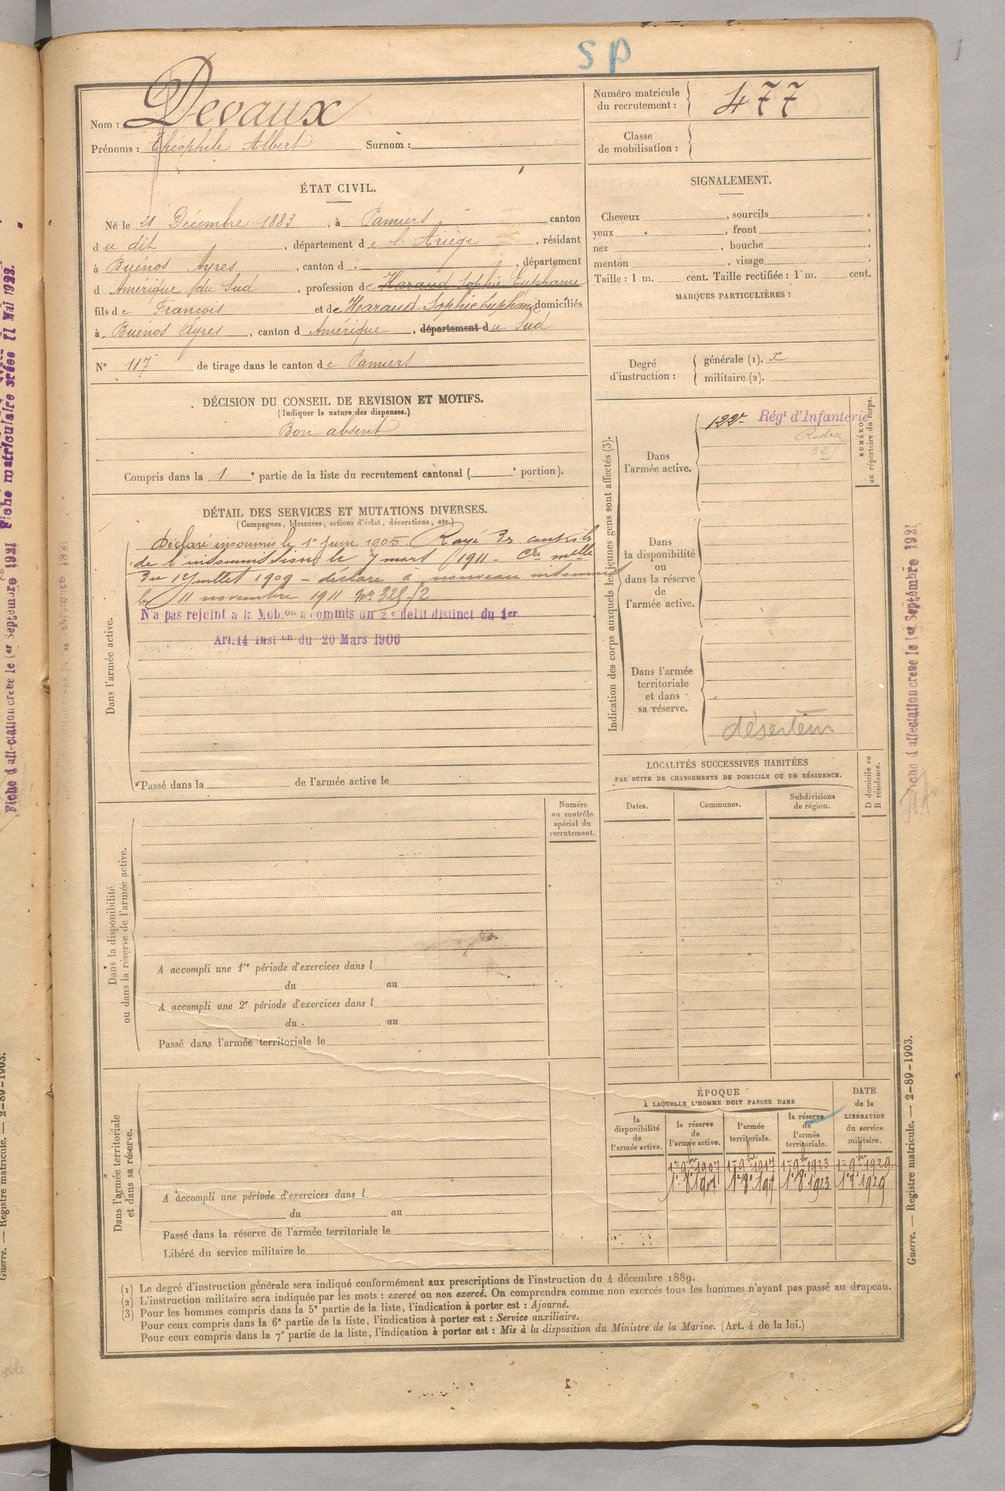 SP
Nom : Devaux
Prénoms : Théophile Albert Surnom :
Numéro matricule du recrutement : 477
Classe de mobilisation :
ÉTAT CIVIL.
Né le 21 Décembre 1883, à Pamiers canton
du dit, département de l'Ariège, résidant
à Buénos Ayres, canton d, département
d Amérique du Sud, profession de Haraud Sophie Euphanie
fils de François et de Haraud Sophie Euphanie domiciliés
à Buénos Ayres, canton d Amérique, département du Sud
N° 117 de tirage dans le canton de Pamiers
DÉCISION DU CONSEIL DE REVISION ET MOTIFS.
(Indiquer la nature des dispenses.)
Bon absent
Compris dans la 1e partie de la liste du recrutement cantonal ( e portion).
SIGNALEMENT.
Cheveux , sourcils ,
yeux , front ,
nez , bouche ,
menton , visage .
Taille : 1 m. cent. Taille rectifiée : 1 m. cent.
MARQUES PARTICULIÈRES :
Degré d'instruction :
générale (1). x
militaire (2).
DÉTAIL DES SERVICES ET MUTATIONS DIVERSES.
(Campagnes, blessures, actions d'éclat, décorations, etc.)
Dans l'armée active.
Déclaré insoumis le 1er Juin 1905 Rayé des contrôles
de l'insoumission le 7 mars 1911.
du 1er Juillet 1909 - déclaré à nouveau insoumis
le 11 novembre 1911
N'a pas rejoint à la Mobon a commis un 2e délit distinct du 1er
Art.14 Instion du 20 Mars 1906
Passé dans la de l'armée active le
Indication des corps auxquels les jeunes gens sont affectés (3).
NUMÉRO au répertoire du corps.
Dans l'armée active.
122e Régt d'Infanterie
Rodez
Dans la disponibilité ou dans la réserve de l'armée active.
Dans l'armée territoriale et dans sa réserve.
déserteur
LOCALITÉS SUCCESSIVES HABITÉES
PAR SUITE DE CHANGEMENTS DE DOMICILE OU DE RÉSIDENCE.
Dates.
Communes.
Subdivisions de région.
D domicile ou R résidence.
Numéro au contrôle spécial du recrutement.
Dans la disponibilité ou dans la réserve de l'armée active.
A accompli une 1re période d'exercices dans l
du au
A accompli une 2e période d'exercices dans l
du au
Passé dans l'armée territoriale le
Dans l'armée territoriale et dans sa réserve.
A accompli une période d'exercices dans l
du au
Passé dans la réserve de l'armée territoriale le
Libéré du service militaire le
ÉPOQUE
À LAQUELLE L'HOMME DOIT PASSER DANS
la disponibilité de l'armée active.
la réserve de l'armée active.
l'armée territoriale.
la réserve de l'armée territoriale.
DATE de la LIBÉRATION du service militaire.
1er 9bre 1907 1er 9bre 1917 1er 9bre 1923 1er 9bre 1929
1er 8bre 1907 1er 8bre 1917 1er 8bre 1923 1er 8bre 1929
(1) Le degré d'instruction générale sera indiqué conformément aux prescriptions de l'instruction du 4 décembre 1889.
(2) L'instruction militaire sera indiquée par les mots : exercé ou non exercé. On comprendra comme non exercés tous les hommes n'ayant pas passé au drapeau.
(3) Pour les hommes compris dans la 5e partie de la liste, l'indication à porter est : Ajourné.
Pour ceux compris dans la 6e partie de la liste, l'indication à porter est : Service auxiliaire.
Pour ceux compris dans la 7e partie de la liste, l'indication à porter est : Mis à la disposition du Ministre de la Marine. (Art. 4 de la loi.)
2
Fiche d'affectation créée le 1er Septembre 1921
Guerre. — Registre matricule. — 2-89-1903.
Fiche d'affectation créée le 1er Septembre 1921 Fiche matriculaire créée 11 Mai 1922.
Guerre. — Registre matricule. — 2-89-1903.